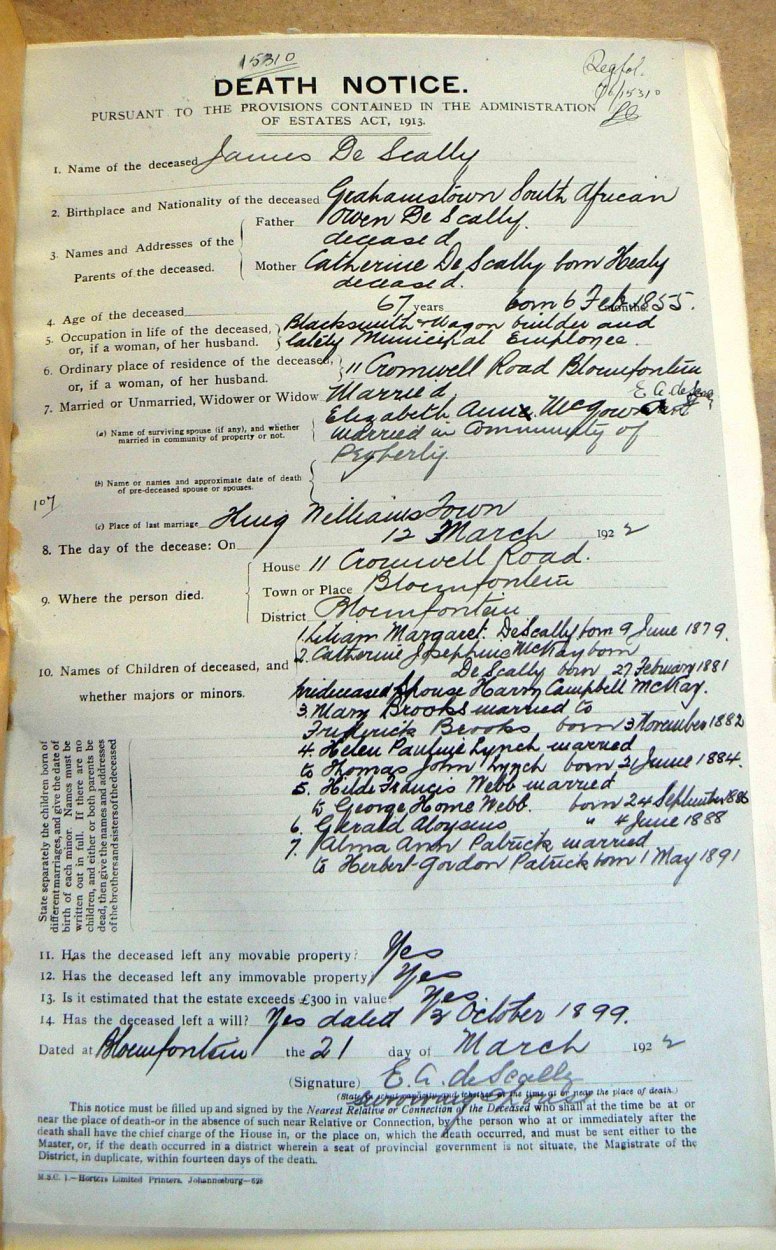 15310
Regfol.
76/15310
DEATH NOTICE.
PURSUANT TO THE PROVISIONS CONTAINED IN THE ADMINISTRATION
OF ESTATES ACT, 1913.
1. Name of the deceased James De Scally
2. Birthplace and Nationality of the deceased Grahamstown South African
3. Names and Addresses of the Parents of the deceased.
Father Owen De Scally.
deceased
Mother Catherine De Scally born Healy
deceased.
4. Age of the deceased 67 years born 6 Feb 1855. months
5. Occupation in life of the deceased, Blacksmith & Wagon builder and
or, if a woman, of her husband. lately Municipal Employee.
6. Ordinary place of residence of the deceased, 11 Cromwell Road Bloemfontein
or, if a woman, of her husband.
7. Married or Unmarried, Widower or Widow Married
E. A. de
(a) Name of surviving spouse (if any), and whether Elizabeth Ann
married in community of property or not. married in Community of
Property.
(b) Name or names and approximate date of death
of pre-deceased spouse or spouses.
107
(c) Place of last marriage King Williams Town
8. The day of the decease: On 12 March 1922
9. Where the person died.
House 11 Cromwell Road.
Town or Place Bloemfontein
District Bloemfontein
10. Names of Children of deceased, and
whether majors or minors.
1. Liliam Margaret. De Scally born 9 June 1879.
2. Catherine Josephine McKay born
De Scally born 27 February 1881
predeceased spouse Harry Campbell McKay.
3. Mary Brooks married to
Frederick Brooks born 3 November 1882
4. Helen Pauline Lynch married
to Thomas John Lynch born 21 June 1884.
5. Hilda Francis Webb married
to George Home Webb. born 24 September 1886
6. Gerald Aloysius " 4 June 1888
7. Alma Ann Patrick married
to Herbert Gordon Patrick born 1 May 1891
State separately the children born of
different marriages, and give the date of
birth of each minor. Names must be
written out in full. If there are no
children, and either or both parents be
dead, then give the names and addresses
of the brothers and sisters of the deceased
11. Has the deceased left any movable property? Yes
12. Has the deceased left any immovable property? Yes
13. Is it estimated that the estate exceeds £300 in value? Yes
14. Has the deceased left a will? Yes dated 2 October 1899.
Dated at Bloemfontein the 21 day of March 1922
(Signature) E. A. de Scally
(State in what capacity and whether at the time at or near the place of death.)
Surviving Spouse
This notice must be filled up and signed by the Nearest Relative or Connection of the Deceased who shall at the time be at or
near the place of death-or in the absence of such near Relative or Connection, by the person who at or immediately after the
death shall have the chief charge of the House in, or the place on, which the death occurred, and must be sent either to the
Master, or, if the death occurred in a district wherein a seat of provincial government is not situate, the Magistrate of the
District, in duplicate, within fourteen days of the death.
M.S.C. 1.—Horters Limited Printers, Johannesburg—628